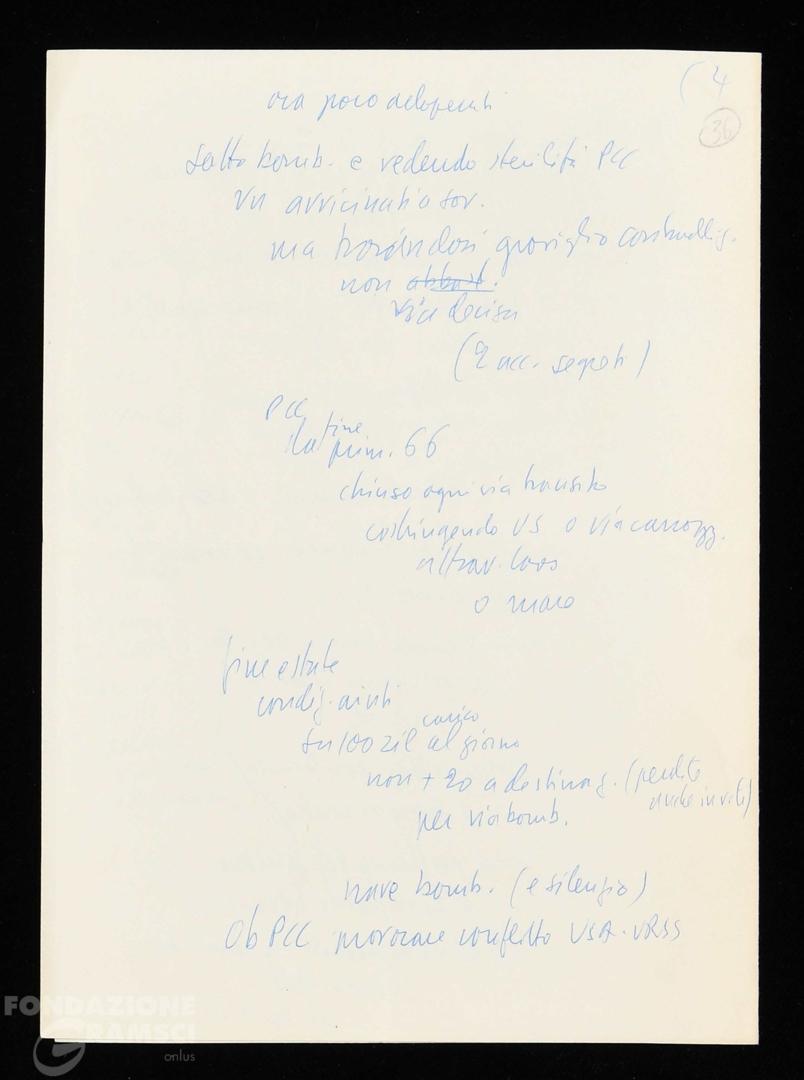 (4
36
ora poco adoperati
sotto bomb. e vedendo sterilità PCC
VN avvicinati a sov.
ma trovándosi groviglio contraddiz.
non abbast.
via decisa
(2 acc. segreti)
PCC
fine
prim. 66
chiuso ogni via transito
costringendo US o via carrozz.
attrav. Laos
o mare
fine estate
condiz. aiuti
carico
su 100 zil al giorno
non + 20 a destinaz. (perdite
anche in vite)
per via bomb.
nave bomb. (e silenzio)
Ob PCC provocare conflitto USA-URSS
FONDAZIONE
GRAMSCI
onlus